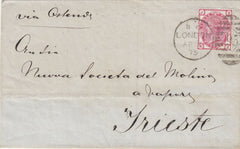 via Ostende
LONDON
AP
75
Nuova Società del Molino
a Vapore
Trieste